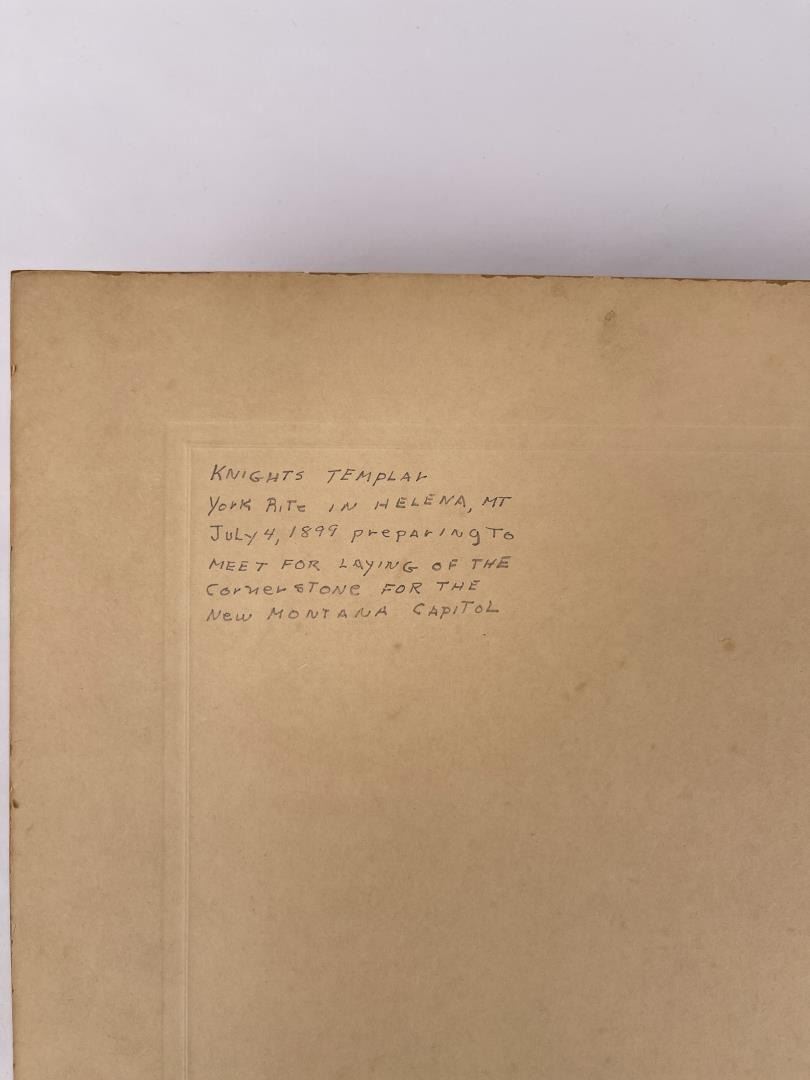 KNIGHTS TEMPLAr
York RiTe IN HELENA, MT
JuLy 4, 1899 preparing To
MEET FOR LAYING OF THE
CornersTone FOR THE
New MONTANA CAPITOL